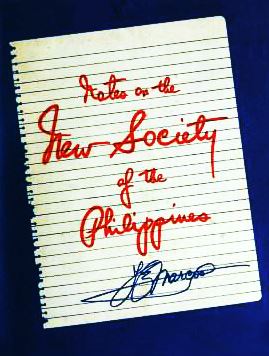 Notes on the
New Society
of the
Philippines
FEMarcos